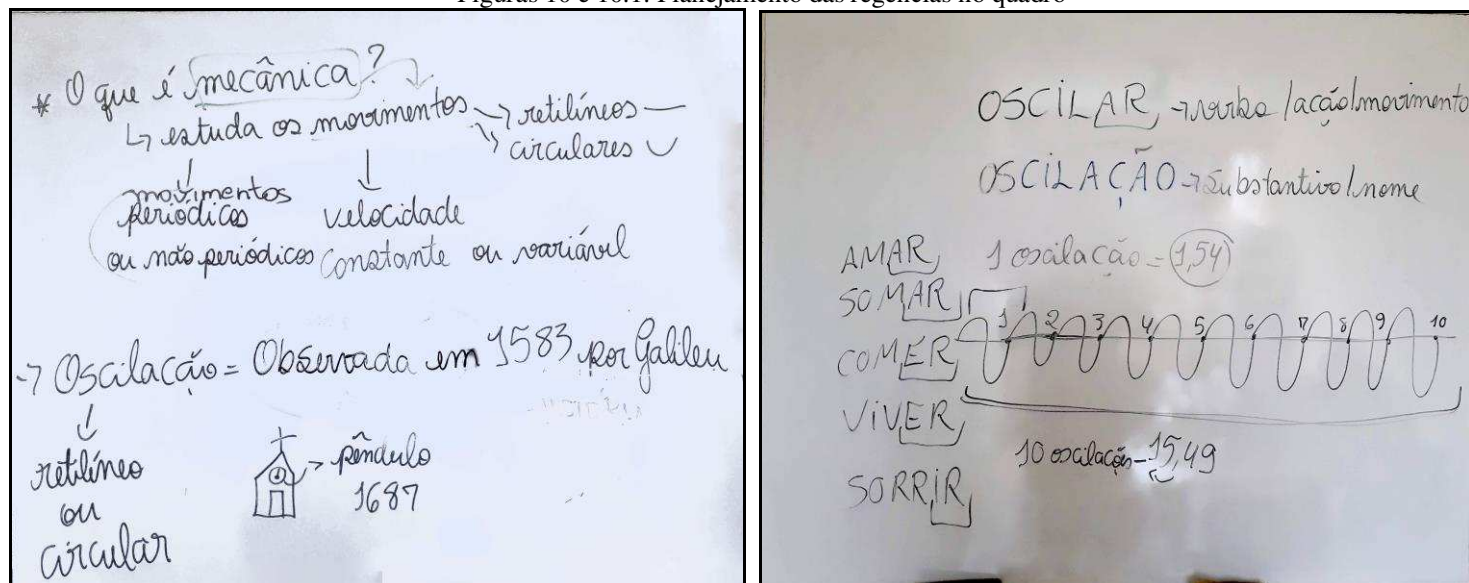 Figuras 10 e 10.1: Planejamento das regências no quadro
* O que é mecânica?
↳ estuda os movimentos → retilíneos —
↘ circulares
↓ ↓
movimentos
periódicos velocidade
ou não periódicos constante ou variável
→ Oscilação = Observada em 1583 por Galileu
↓
retilíneo
ou
circular
→ pêndulo
1687
OSCILAR → verbo/ação/movimento
OSCILAÇÃO → Substantivo/nome
1 oscilação = 1,54
AMAR
SOMAR
COMER
VIVER
SORRIR
1 2 3 4 5 6 7 8 9 10
10 oscilações - 15,49